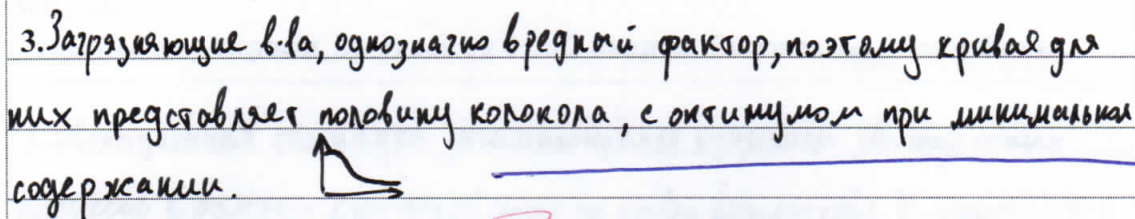 3. Загрязняющие в-ва, однозначно вредный фактор, поэтому кривая для
них представляет половину колокола, с оптимумом при минимальном
содержании.